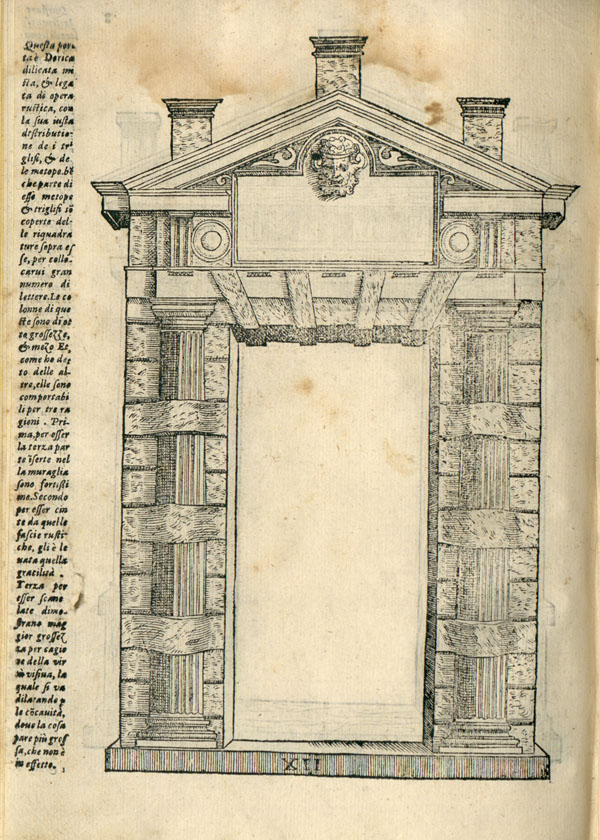 Questa por
ta è Dorica
dilicata mi
sta, & lega
ta di opera
rustica, con
la sua iusta
distributio
ne de i tri
glifi, & de
le metope. bẽ
che parte di
esse metope
& triglifi sõ
coperte del-
le riquadra
ture sopra es
se, per collo-
carui gran
numero di
lettere. Le co
lonne di que
ste sono di ot
to grossezze,
& mezo Et
come ho det
to delle al-
tre, elle sono
comportabi
li per tre ra
gioni. Pri-
ma, per esser
la terza par
te ĩserte nel
la muraglia
sono fortissi
me. Secondo
per esser cin
te da quelle
fascie rusti-
che, gli è le
uata quella
gracilità.
Terza per
esser scane
late dimo-
strano mag
gior grossez
za per cagio
ne della vir
tù visiua, la
quale si va
dilatando p
le cõcauità,
doue la cosa
pare piu gros
sa, che non è
in effetto.
XII